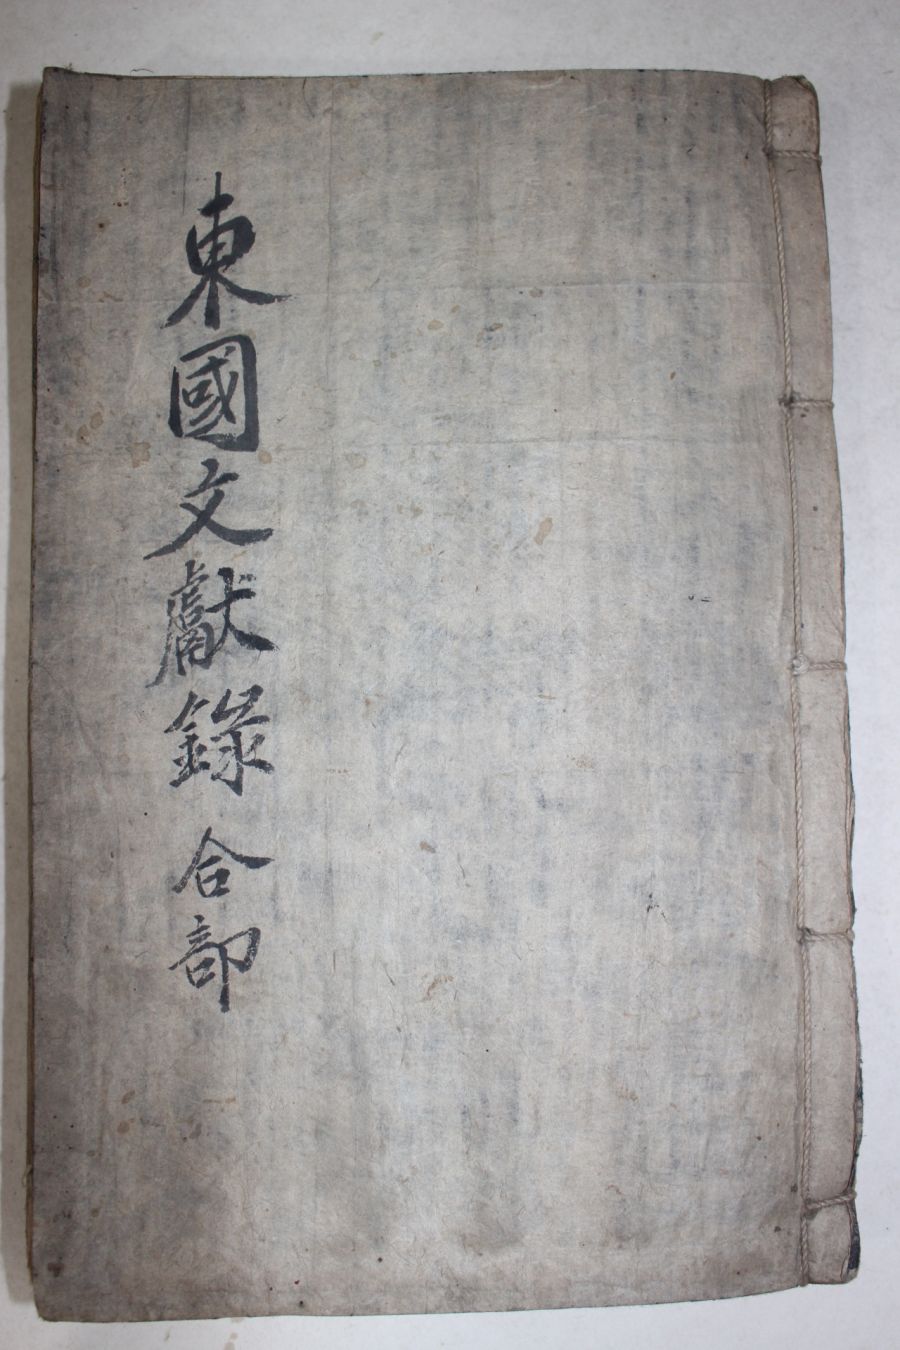 東國文獻錄 合部